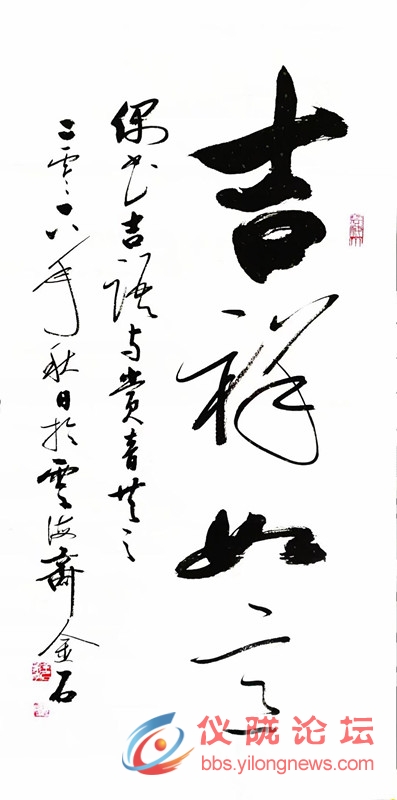 吉祥如意
偶书吉语与赏音共之
二零一八年秋日於雲海斋金石
仪陇论坛
bbs.yilongnews.com